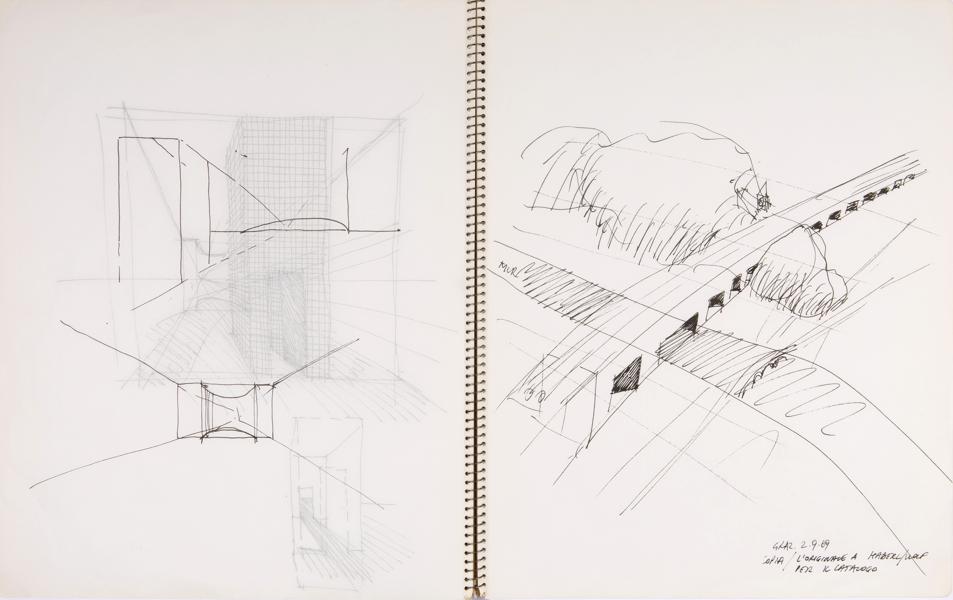 MUR
GRAZ. 2.9.69
COPIA / L'ORIGINALE A HABERL/WOLF
PER IL CATALOGO